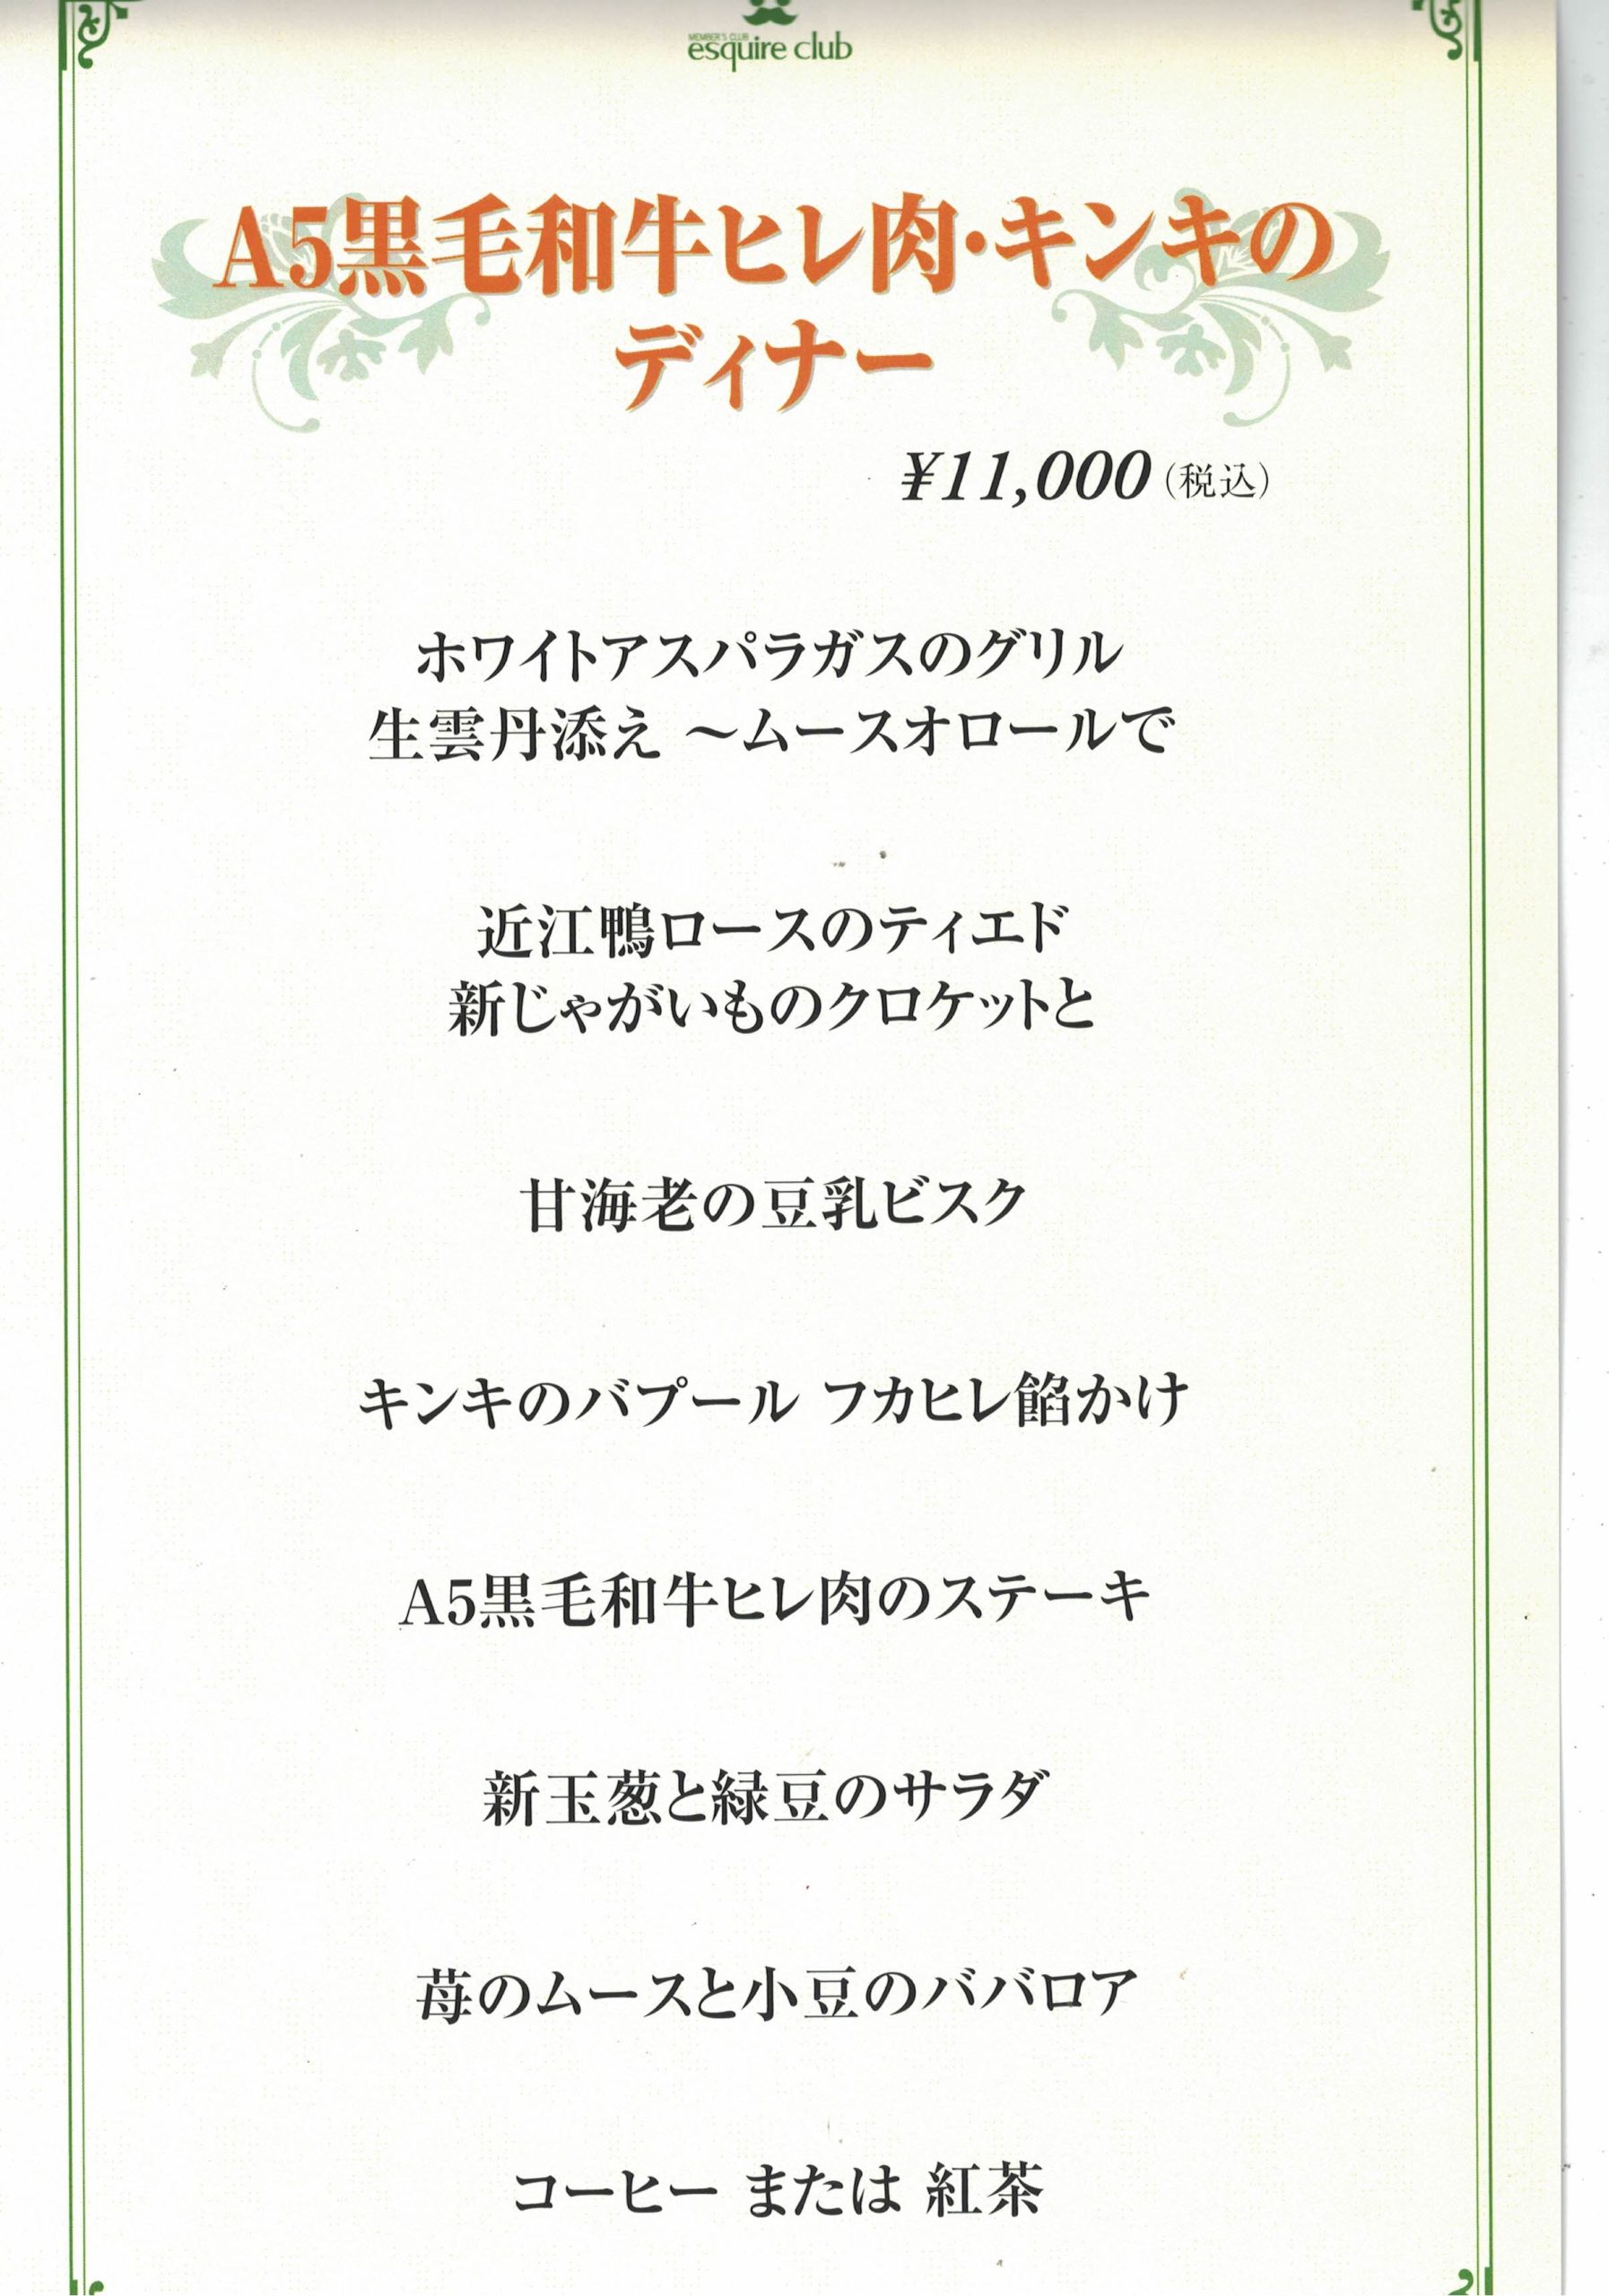 MEMBER'S CLUB
esquire club
A5黒毛和牛ヒレ肉・キンキの
ディナー
¥11,000（税込）
ホワイトアスパラガスのグリル
生雲丹添え ～ムースオロールで
近江鴨ロースのティエド
新じゃがいものクロケットと
甘海老の豆乳ビスク
キンキのバプール フカヒレ餡かけ
A5黒毛和牛ヒレ肉のステーキ
新玉葱と緑豆のサラダ
苺のムースと小豆のババロア
コーヒー または 紅茶